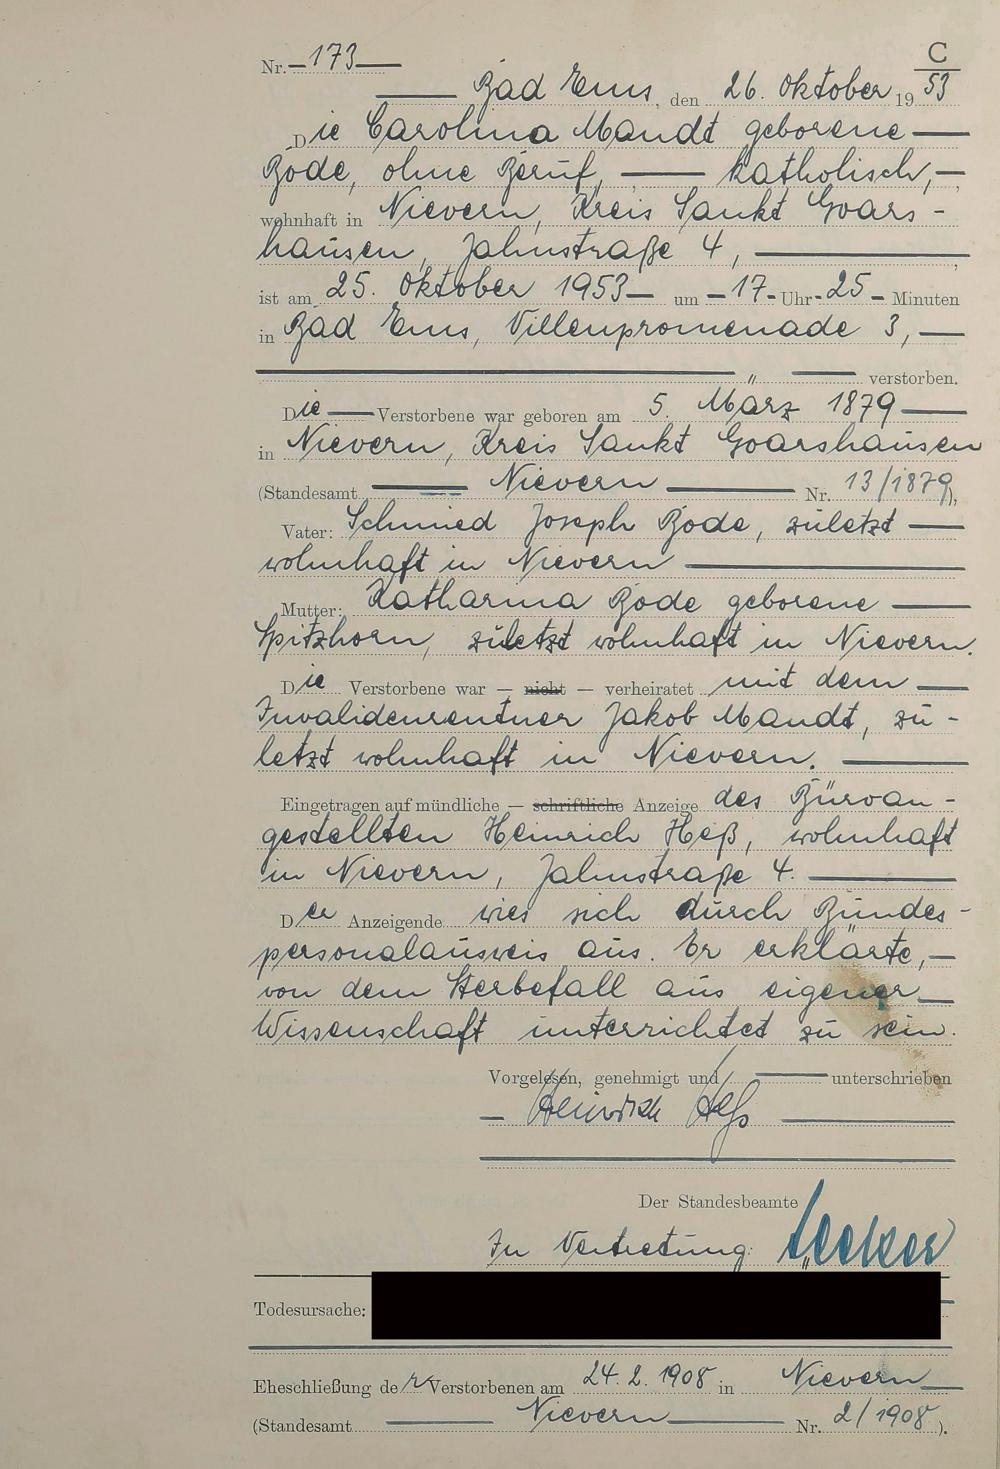 C
Nr. 173
53
Bad Ems, den 26. Oktober 1953
Die Carolina Mandt geborene
Bode, ohne Beruf, katholisch,
wohnhaft in Nievern, Kreis Sankt Goars-
hausen, Jahnstraße 4,
ist am 25. Oktober 1953 um 17 Uhr 25 Minuten
in Bad Ems, Villenpromenade 3,
verstorben.
Die Verstorbene war geboren am 5. März 1879
in Nievern, Kreis Sankt Goarshausen
(Standesamt Nievern Nr. 13/1879),
Vater: Schmied Joseph Bode, zuletzt
wohnhaft in Nievern
Mutter: Katharina Bode geborene
Spitzhorn, zuletzt wohnhaft in Nievern.
Die Verstorbene war — nicht — verheiratet mit dem
Invalidenrentner Jakob Mandt, zu-
letzt wohnhaft in Nievern.
Eingetragen auf mündliche — schriftliche Anzeige des Büroan-
gestellten Heinrich Heß, wohnhaft
in Nievern, Jahnstraße 4.
Der Anzeigende wies sich durch Bundes-
personalausweis aus. Er erklärte,
von dem Sterbefall aus eigener
Wissenschaft unterrichtet zu sein.
Vorgelesen, genehmigt und unterschrieben
Heinrich Heß
Der Standesbeamte
In Vertretung:
Todesursache:
Eheschließung der Verstorbenen am 24.2.1908 in Nievern
(Standesamt Nievern Nr. 2/1908).